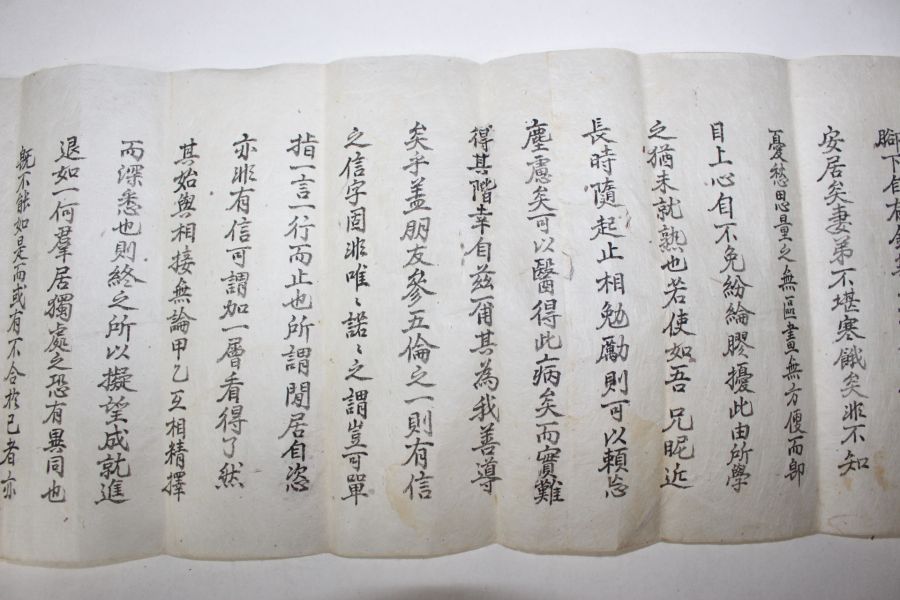 脚下自有
安居矣妻弟不堪寒餓矣非不知
憂愁思量之無區畫無方便而卽
目上心自不免紛綸膠擾此由所學
之猶未就熟也若使如吾兄昵近
長時隨起止相勉勵則可以賴忘
塵慮矣可以醫得此病矣而實難
得其階幸自玆爾其為我善導
矣乎盖朋友參五倫之一則有信
之信字固非唯〻諾〻之謂豈可單
指一言一行而止也所謂閒居自恣
亦非有信可謂加一層看得了然
其始與相接無論甲乙互相精擇
而深悉也則終之所以擬望成就進
退如一何羣居獨處之恐有異同也
旣不能如是而或有不合於己者亦